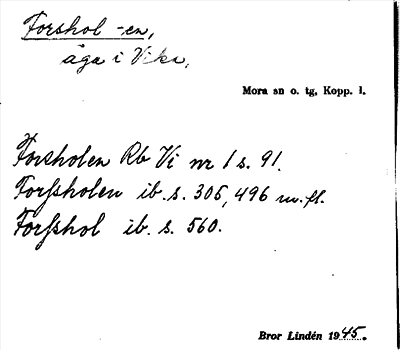 Forshol -en,
äga i Vika,
Mora sn o. tg, Kopp. l.
Forsholen Rb Vi nr 1 s. 91.
Forssholen ib. s. 305, 496 m. fl.
Forsshol ib. s. 560.
Bror Lindén 1945.